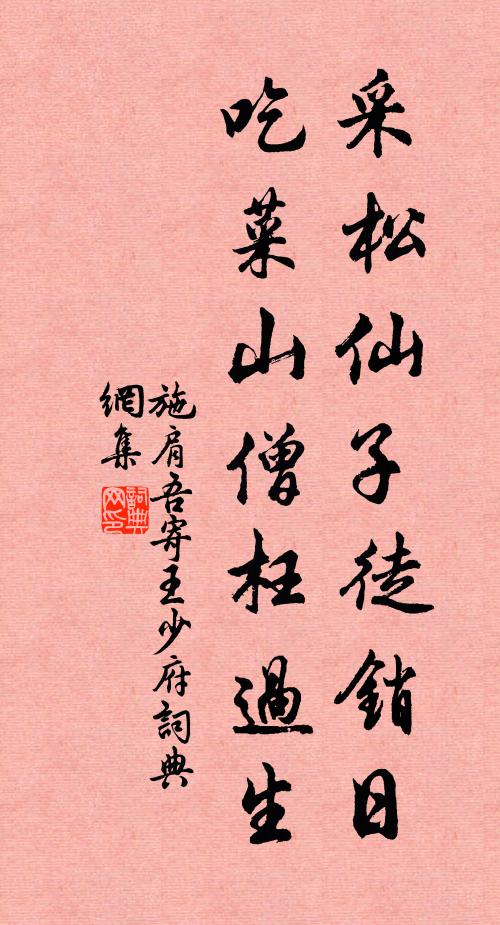 采松仙子徒銷日
吃菜山僧枉過生
施肩吾寄王少府詞典
網集
詞典
网印